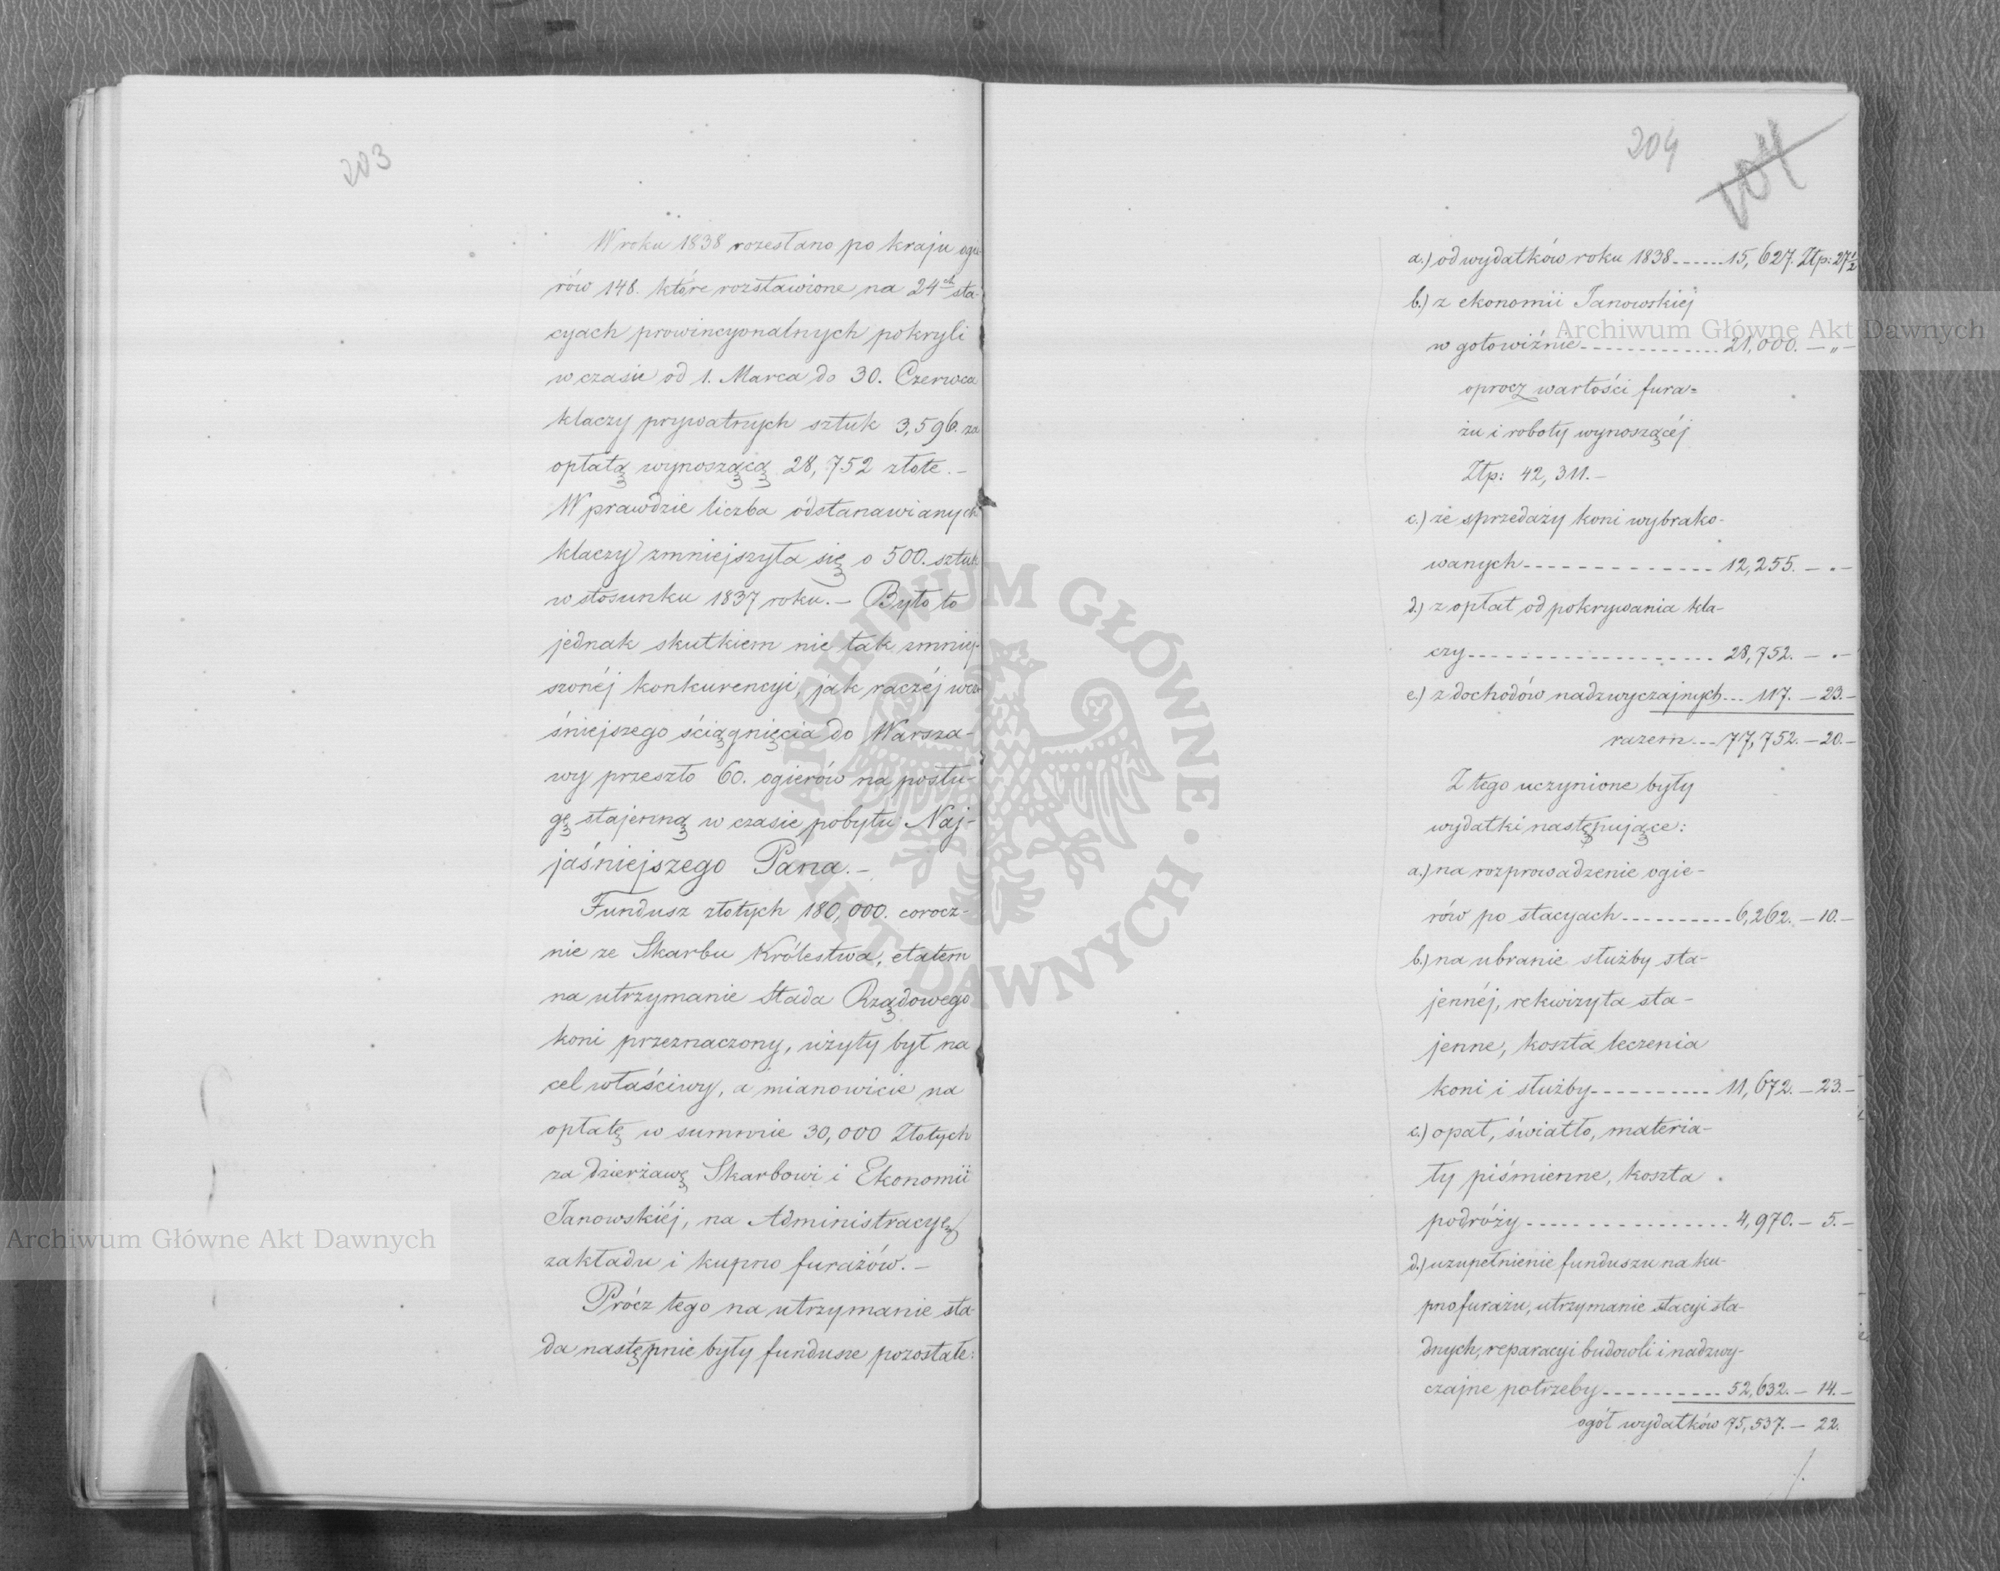 203
W roku 1838 rozesłano po kraju ogie-
rów 148. które rozstawione na 24ech sta-
cyach prowincyonalnych pokryli
w czasie od 1. Marca do 30. Czerwca
klaczy prywatnych sztuk 3,596. za
opłatą wynoszącą 28,752 złote. –
W prawdzie liczba odstanawianych
klaczy zmniejszyła się o 500. sztuk
w stosunku 1837 roku. – Było to
jednak skutkiem nie tak zmniej-
szonéj konkurencyi, jak raczéj wcze-
śniejszego ściągnięcia do Warsza-
wy przeszło 60. ogierów na posłu-
gę stajenną w czasie pobytu Naj-
jaśniejszego Pana. –
Fundusz złotych 180,000. corocz-
nie ze Skarbu Królestwa, etatem
na utrzymanie Stada Rządowego
koni przeznaczony, użyty był na
cel właściwy, a mianowicie na
opłatę w summie 30,000 Złotych
za dzierżawę Skarbowi i Ekonomii
Janowskiéj, na Administracyę
zakładu i kupno furażów. –
Prócz tego na utrzymanie sta-
da następnie były fundusze pozostałe:
204
104
a.) od wydatków roku 1838 ------ 15,627. Złp: 27½
b.) z ekonomii Janowskiéj
w gotowiźnie ------------- 21,000. – „ –
oprocz wartości fura=
żu i roboty wynoszącéj
Złp: 42,311. –
c.) ze sprzedaży koni wybrako-
wanych -------------- 12,255. – . –
d.) z opłat od pokrywania kla-
czy ------------------- 28,752. – . –
e.) z dochodów nadzwyczajnych --- 117. – 23. –
razem --- 77,752. – 20. –
Z tego uczynione były
wydatki następujące:
a.) na rozprowadzenie ogie-
rów po stacyach ---------- 6,262. – 10. –
b.) na ubranie służby sta-
jennéj, rekwizyta sta-
jenne, koszta leczenia
koni i służby ---------- 11,672. – 23. –
c.) opał, światło, materia-
ły piśmienne, koszta
podróży ---------------- 4,970. – 5. –
d.) uzupełnienie funduszu na ku-
pno furażu, utrzymanie stacyi sta-
dnych, reparacyi budowli i nadzwy-
czajne potrzeby ---------- 52,632. – 14. –
ogół wydatków 75,537. – 22.
Archiwum Główne Akt Dawnych
Archiwum Główne Akt Dawnych
ARCHIWUM GŁÓWNE · AKT DAWNYCH ·